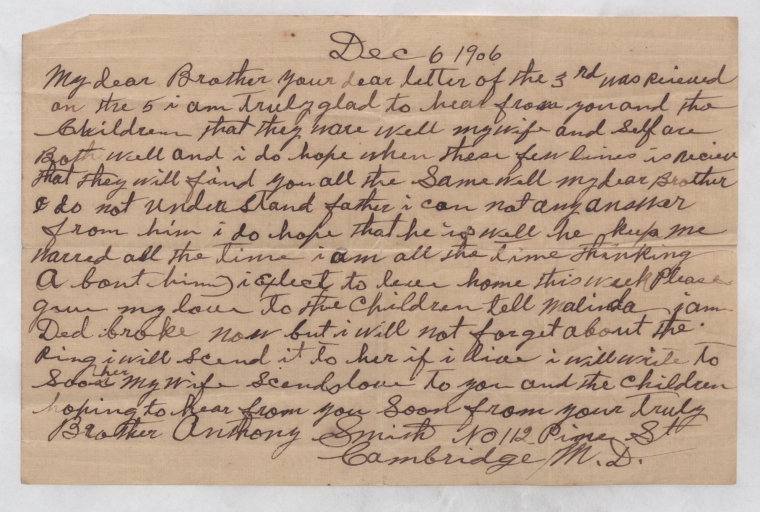 Dec 6 1906
My dear Brother your dear letter of the 3rd was recieved
on the 5 i am truly glad to hear from you and the
Children that they ware well my wife and Self are
Both well and i do hope when these few lines is reciev
that they will find you all the Same well my dear Brother
i do not under Stand father i can not any answer
from him i do hope that he is well he keep me
warred all the time i am all the time thinking
A bout him i exfect to leve home this week Please
give my love to the Children tell Malinda i am
Ded broke now but i will not forget about the
Ring i will Scend it to her if i live i will write to
her Soon My wife Scends love to you and the children
hoping to hear from you Soon from your truly
Brother Anthony Smith No 112 Pine St
Cambridge M.D.